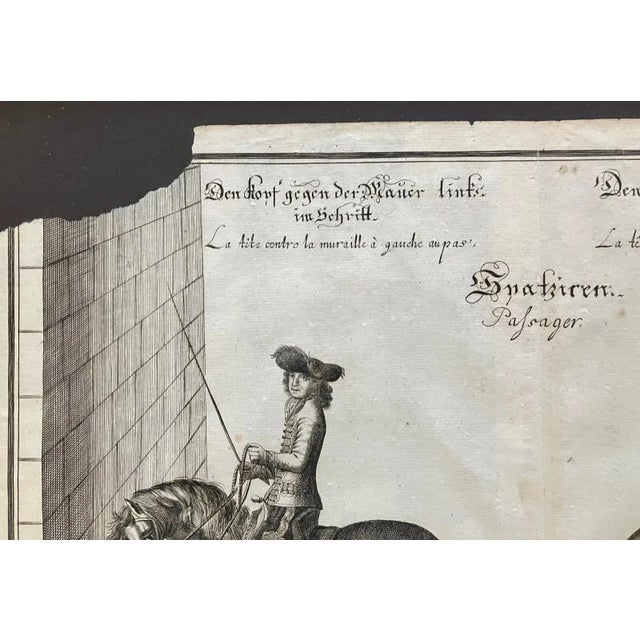 Den Kopf gegen der Mauer links
im Schritt.
La tête contro la muraille à gauche au pas.
Den
La tê
Spatziren.
Passager.